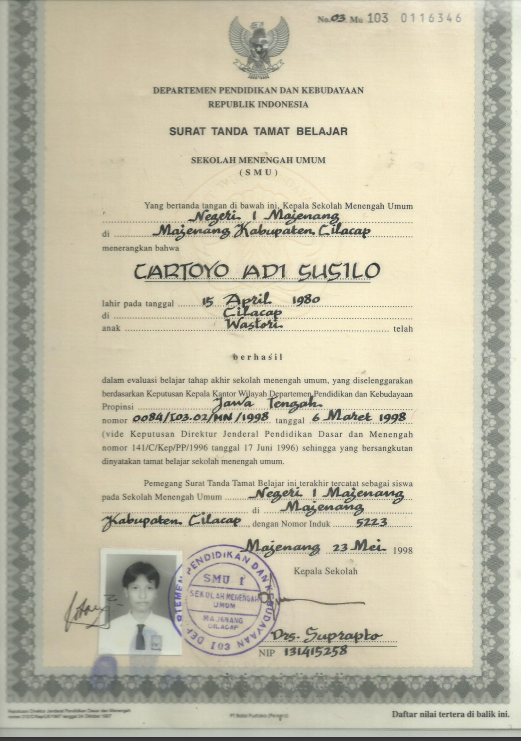 No. 03 Mu 103 0116346
DEPARTEMEN PENDIDIKAN DAN KEBUDAYAAN
REPUBLIK INDONESIA
SURAT TANDA TAMAT BELAJAR
SEKOLAH MENENGAH UMUM
( S M U )
Yang bertanda tangan di bawah ini, Kepala Sekolah Menengah Umum
Negeri 1 Majenang
di Majenang Kabupaten Cilacap
menerangkan bahwa
CARTOYO ADI SUSILO
lahir pada tanggal 15 April 1980
di Cilacap
anak Wastori telah
berhasil
dalam evaluasi belajar tahap akhir sekolah menengah umum, yang diselenggarakan
berdasarkan Keputusan Kepala Kantor Wilayah Departemen Pendidikan dan Kebudayaan
Propinsi Jawa Tengah
nomor 0084/I03.02/MN/1998 tanggal 6 Maret 1998
(vide Keputusan Direktur Jenderal Pendidikan Dasar dan Menengah
nomor 141/C/Kep/PP/1996 tanggal 17 Juni 1996) sehingga yang bersangkutan
dinyatakan tamat belajar sekolah menengah umum.
Pemegang Surat Tanda Tamat Belajar ini terakhir tercatat sebagai siswa
pada Sekolah Menengah Umum Negeri 1 Majenang
di Majenang
Kabupaten Cilacap dengan Nomor Induk 5223
Majenang 23 Mei 1998
Kepala Sekolah
DEPARTEMEN PENDIDIKAN DAN KEBUDAYAAN
SMU 1
SEKOLAH MENENGAH
UMUM
MAJENANG
CILACAP
I03
Drs. Suprapto
NIP 131415258
Daftar nilai tertera di balik ini.